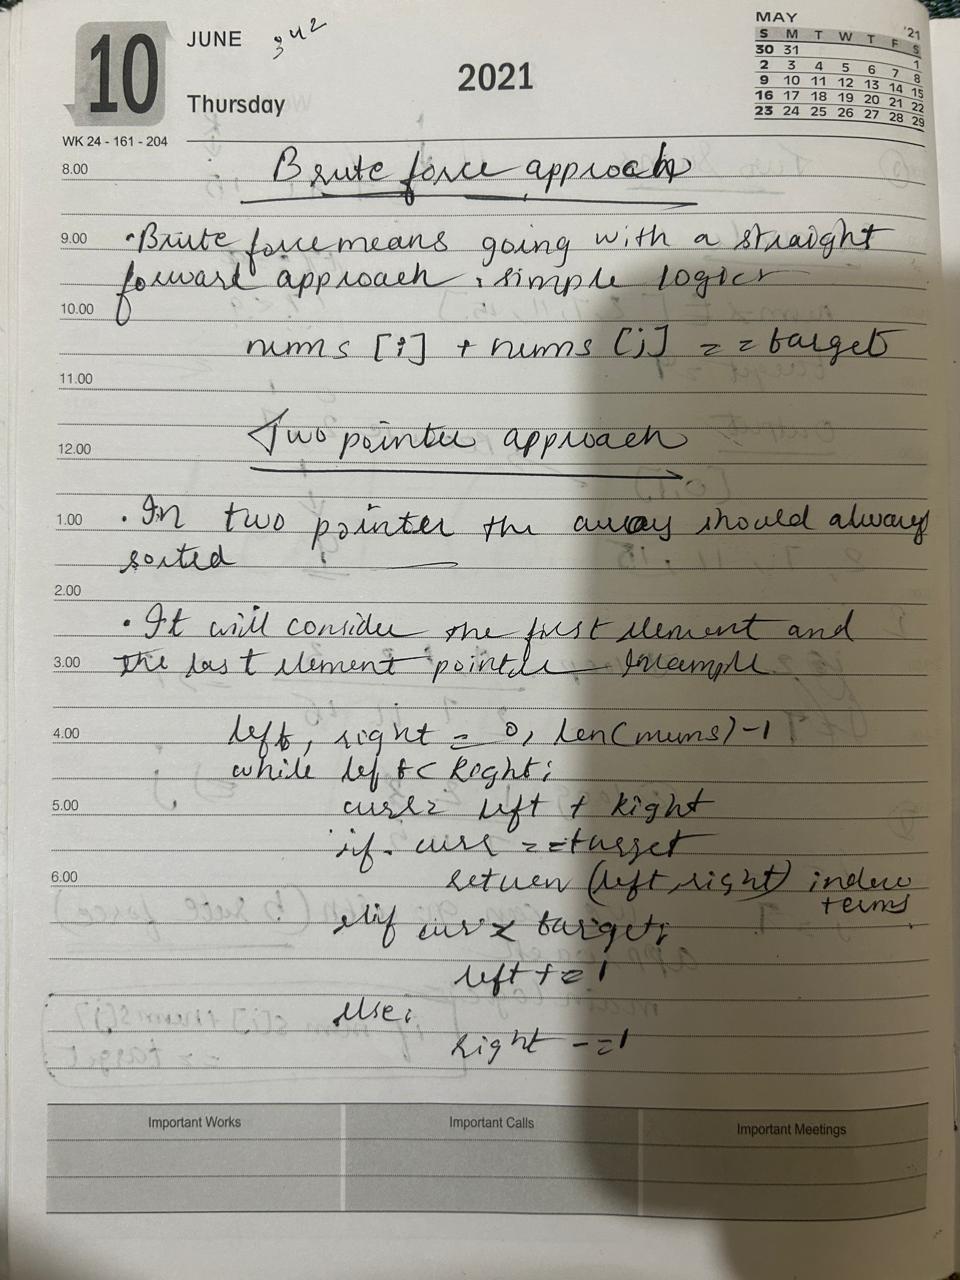 10
JUNE
Thursday
WK 24 - 161 - 204
2021
MAY '21
S M T W T F S
30 31 1
2 3 4 5 6 7 8
9 10 11 12 13 14 15
16 17 18 19 20 21 22
23 24 25 26 27 28 29
8.00 Brute force approach
9.00 • Brute force means going with a straight
forward approach, simple logic
10.00
nums [i] + nums [j] == target
11.00
Two pointer approach
12.00
1.00 • In two pointer the array should always
sorted
2.00
• It will consider the first element and
3.00 the last element pointer
4.00 left, right = 0, len(nums)-1
while left < Right:
5.00 curr = left + Right
if curr == target
6.00 return (left, right) index
terms
elif curr < target:
left += 1
else:
right -= 1
Important Works Important Calls Important Meetings